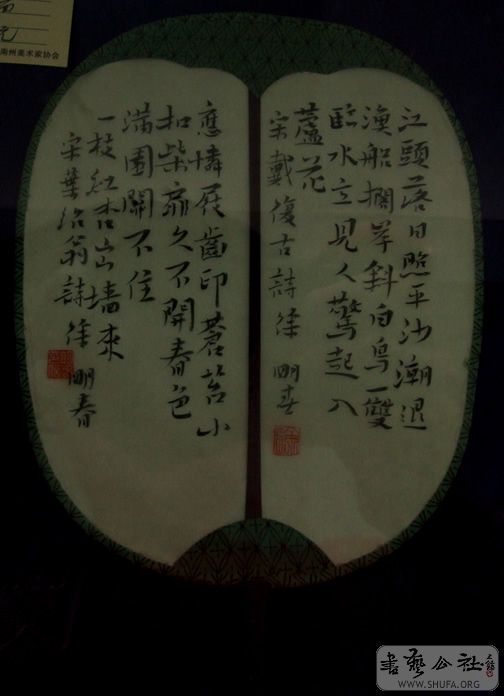 江頭落日照平沙潮退
漁船擱岸斜白鳥一雙
臨水立見人驚起入
蘆花
宋戴復古詩徐明春
應憐屐齒印蒼苔小
扣柴扉久不開春色
滿園關不住
一枝紅杏出墙來
宋葉紹翁詩徐明春
州美术家协会
書藝公社
WWW.SHUFA.ORG